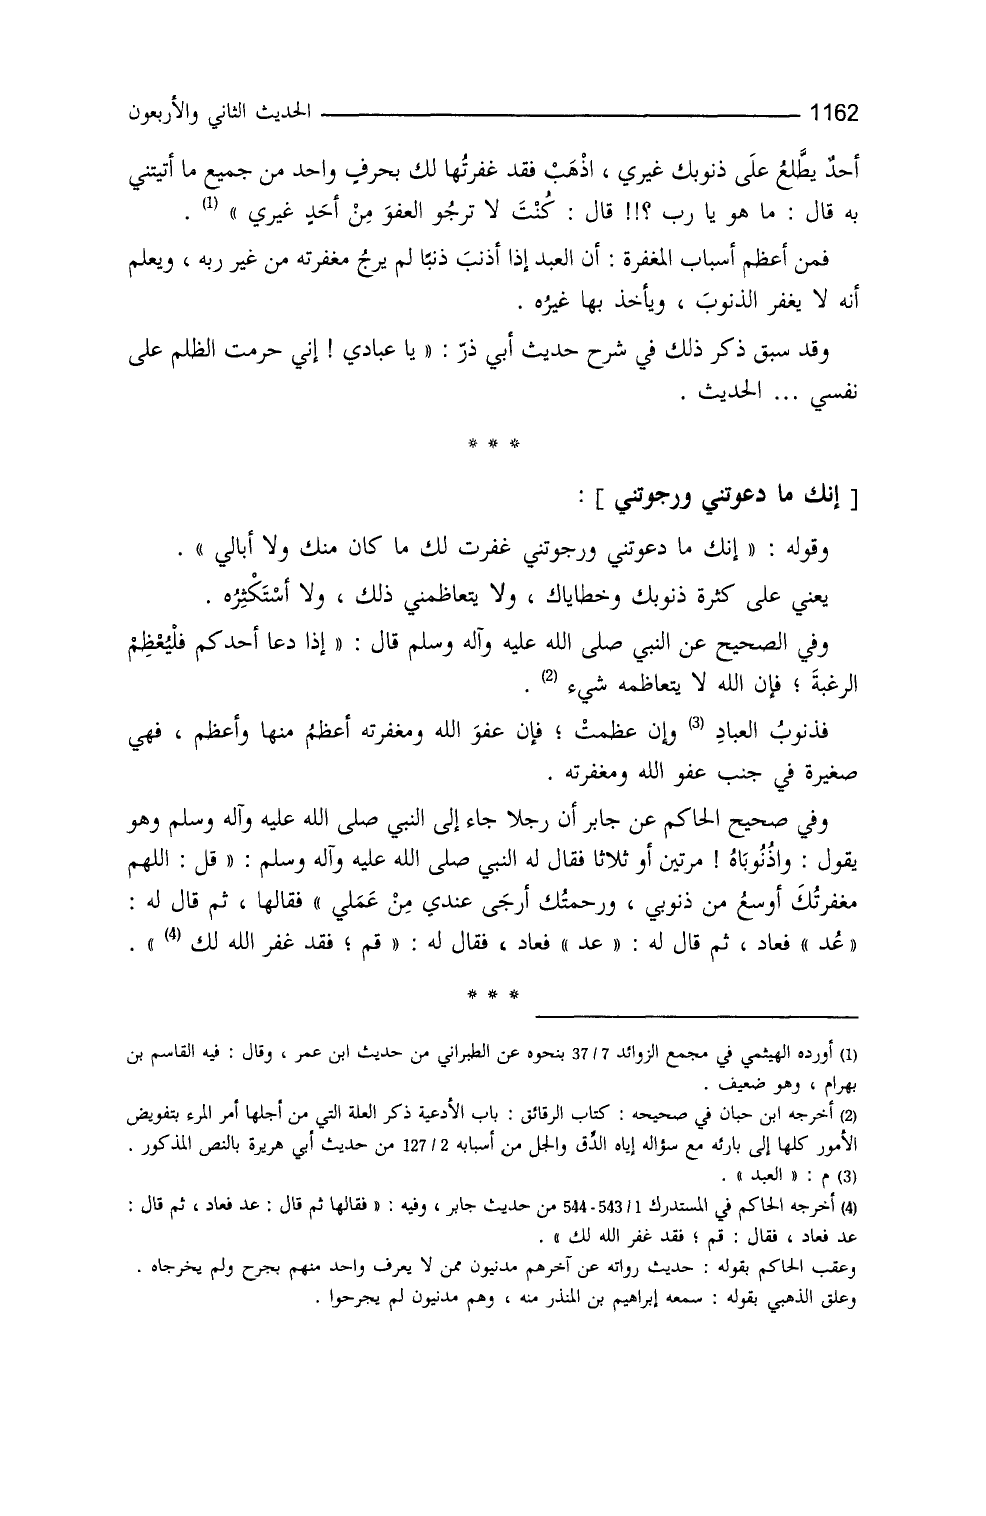 1162 الحديث الثاني والأربعون
أحدٌ يطَّلعُ علَى ذنوبك غيري ، اذْهَبْ فقد غفرتُها لك بحرفٍ واحد من جميع ما أتيتني
به قال : ما هو يا رب ؟!! قال : كُنْتَ لا ترجُو العفوَ مِنْ أحَدٍ غيري » (1) .
فمن أعظم أسباب المغفرة : أن العبد إذا أذنبَ ذنبًا لم يرجُ مغفرته من غير ربه ، ويعلم
أنه لا يغفر الذنوبَ ، ويأخذ بها غيرُه .
وقد سبق ذكر ذلك في شرح حديث أبي ذرّ : « يا عبادي ! إني حرمت الظلم على
نفسي ... الحديث .
* * *
[ إنك ما دعوتني ورجوتني ] :
وقوله : « إنك ما دعوتني ورجوتني غفرت لك ما كان منك ولا أبالي » .
يعني على كثرة ذنوبك وخطاياك ، ولا يتعاظمني ذلك ، ولا أسْتَكْثِرُه .
وفي الصحيح عن النبي صلى الله عليه وآله وسلم قال : « إذا دعا أحدكم فلْيُعْظِمْ
الرغبةَ ؛ فإن الله لا يتعاظمه شيء (2) .
فذنوبُ العبادِ (3) وإن عظمتْ ؛ فإن عفوَ الله ومغفرته أعظمُ منها وأعظم ، فهي
صغيرة في جنب عفو الله ومغفرته .
وفي صحيح الحاكم عن جابر أن رجلا جاء إلى النبي صلى الله عليه وآله وسلم وهو
يقول : واذُنُوبَاهُ ! مرتين أو ثلاثا فقال له النبي صلى الله عليه وآله وسلم : « قل : اللهم
مغفرتُكَ أوسعُ من ذنوبي ، ورحمتُك أرجَى عندي مِنْ عَمَلي » فقالها ، ثم قال له :
« عُد » فعاد ، ثم قال له : « عد » فعاد ، فقال له : « قم ؛ فقد غفر الله لك (4) » .
* * *
(1) أورده الهيثمي في مجمع الزوائد 7 / 37 بنحوه عن الطبراني من حديث ابن عمر ، وقال : فيه القاسم بن
بهرام ، وهو ضعيف .
(2) أخرجه ابن حبان في صحيحه : كتاب الرقائق : باب الأدعية ذكر العلة التي من أجلها أمر المرء بتفويض
الأمور كلها إلى بارئه مع سؤاله إياه الدِّق والجل من أسبابه 2 / 127 من حديث أبي هريرة بالنص المذكور .
(3) م : « العبد » .
(4) أخرجه الحاكم في المستدرك 1 / 543 - 544 من حديث جابر ، وفيه : « فقالها ثم قال : عد فعاد ، ثم قال :
عد فعاد ، فقال : قم ؛ فقد غفر الله لك » .
وعقب الحاكم بقوله : حديث رواته عن آخرهم مدنيون ممن لا يعرف واحد منهم بجرح ولم يخرجاه .
وعلق الذهبي بقوله : سمعه إبراهيم بن المنذر منه ، وهم مدنيون لم يجرحوا .